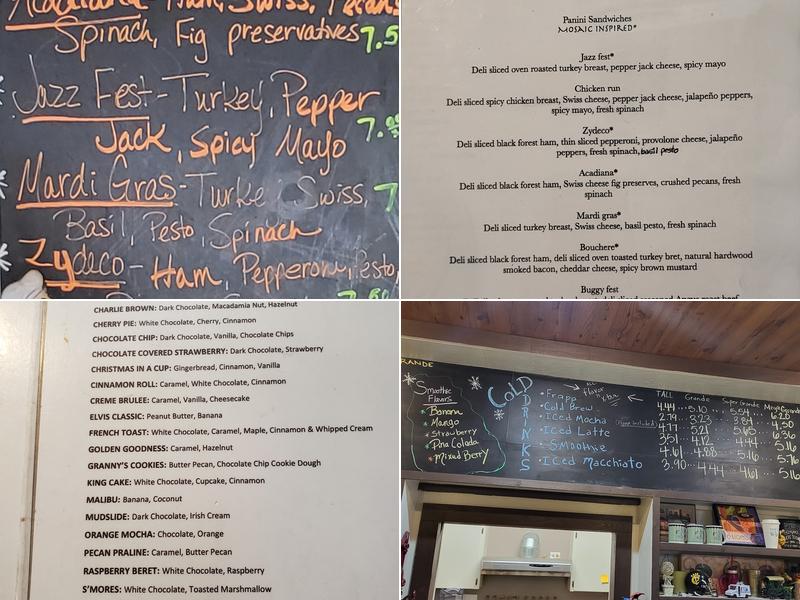 Spinach, Fig preservatives 7.5
Jazz Fest - Turkey, Pepper
Jack, Spicy Mayo
Mardi Gras - Turke Swiss,
Basil, Pesto, Spinach
Zydeco - Ham, Pepperoni, Pesto,
Panini Sandwiches
MOSAIC INSPIRED*
Jazz fest*
Deli sliced oven roasted turkey breast, pepper jack cheese, spicy mayo
Chicken run
Deli sliced spicy chicken breast, Swiss cheese, pepper jack cheese, jalapeño peppers,
spicy mayo, fresh spinach
Zydeco*
Deli sliced black forest ham, thin sliced pepperoni, provolone cheese, jalapeño
peppers, fresh spinach, basil pesto
Acadiana*
Deli sliced black forest ham, Swiss cheese fig preserves, crushed pecans, fresh
spinach
Mardi gras*
Deli sliced turkey breast, Swiss cheese, basil pesto, fresh spinach
Bouchere*
Deli sliced black forest ham, deli sliced oven toasted turkey bret, natural hardwood
smoked bacon, cheddar cheese, spicy brown mustard
Buggy fest
CHARLIE BROWN: Dark Chocolate, Macadamia Nut, Hazelnut
CHERRY PIE: White Chocolate, Cherry, Cinnamon
CHOCOLATE CHIP: Dark Chocolate, Vanilla, Chocolate Chips
CHOCOLATE COVERED STRAWBERRY: Dark Chocolate, Strawberry
CHRISTMAS IN A CUP: Gingerbread, Cinnamon, Vanilla
CINNAMON ROLL: Caramel, White Chocolate, Cinnamon
CREME BRULEE: Caramel, Vanilla, Cheesecake
ELVIS CLASSIC: Peanut Butter, Banana
FRENCH TOAST: White Chocolate, Caramel, Maple, Cinnamon & Whipped Cream
GOLDEN GOODNESS: Caramel, Hazelnut
GRANNY'S COOKIES: Butter Pecan, Chocolate Chip Cookie Dough
KING CAKE: White Chocolate, Cupcake, Cinnamon
MALIBU: Banana, Coconut
MUDSLIDE: Dark Chocolate, Irish Cream
ORANGE MOCHA: Chocolate, Orange
PECAN PRALINE: Caramel, Butter Pecan
RASPBERRY BERET: White Chocolate, Raspberry
S'MORES: White Chocolate, Toasted Marshmallow
RANDE
Smoothie
Flavors
Banana
Mango
Strawberry
Pina Colada
Mixed Berry
COLD
DRINKS
TALL Grande Super Grande
Frapp 4.44 5.10 5.54
Cold Brew 2.79 3.23 3.84 4.50
Iced Mocha 4.77 5.21 5.65
Iced Latte 3.51 4.12 4.44
Smoothie 4.61 4.88 5.16
Iced Macchiato 3.90 4.44 4.61